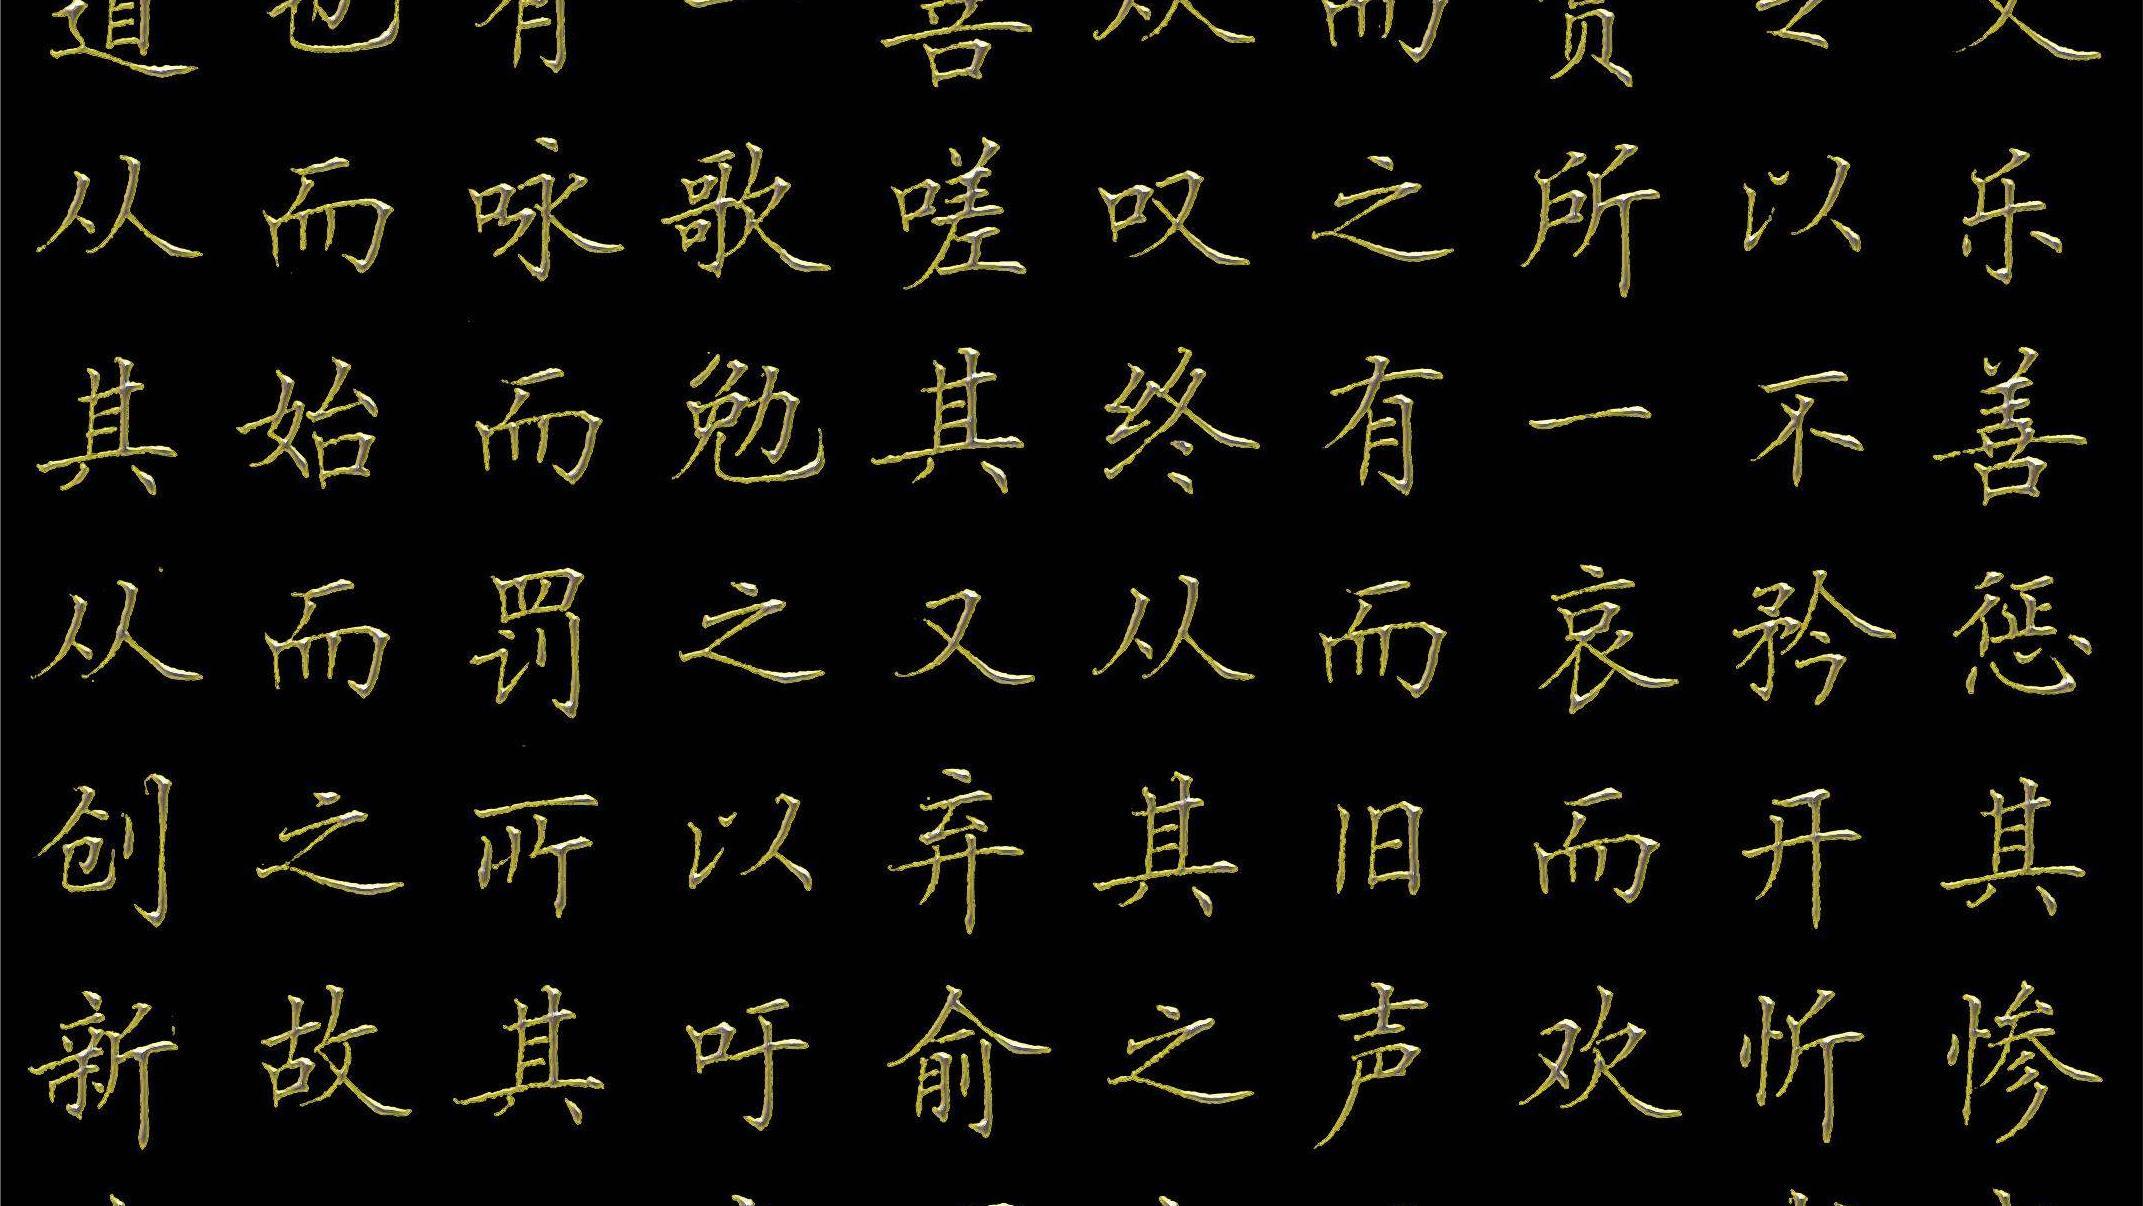 道也有一善从而赏之又
从而咏歌嗟叹之所以乐
其始而勉其终有一不善
从而罚之又从而哀矜惩
创之所以弃其旧而开其
新故其吁俞之声欢忻惨